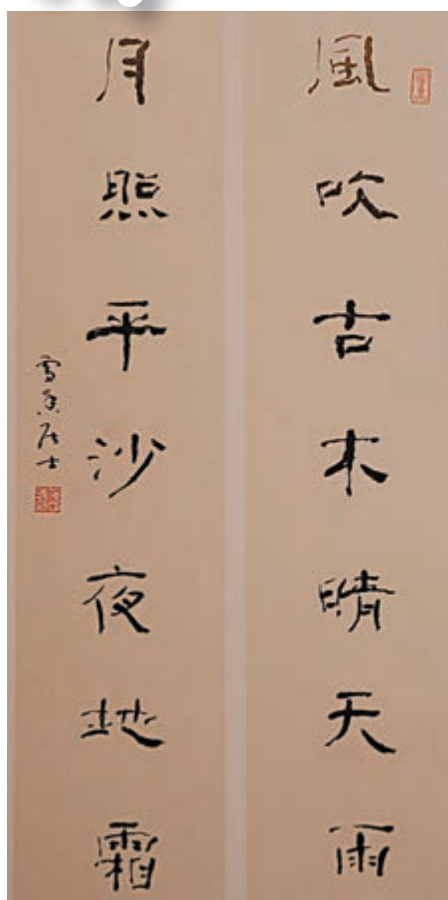 風吹古木晴天雨
月照平沙夜地霜
居士